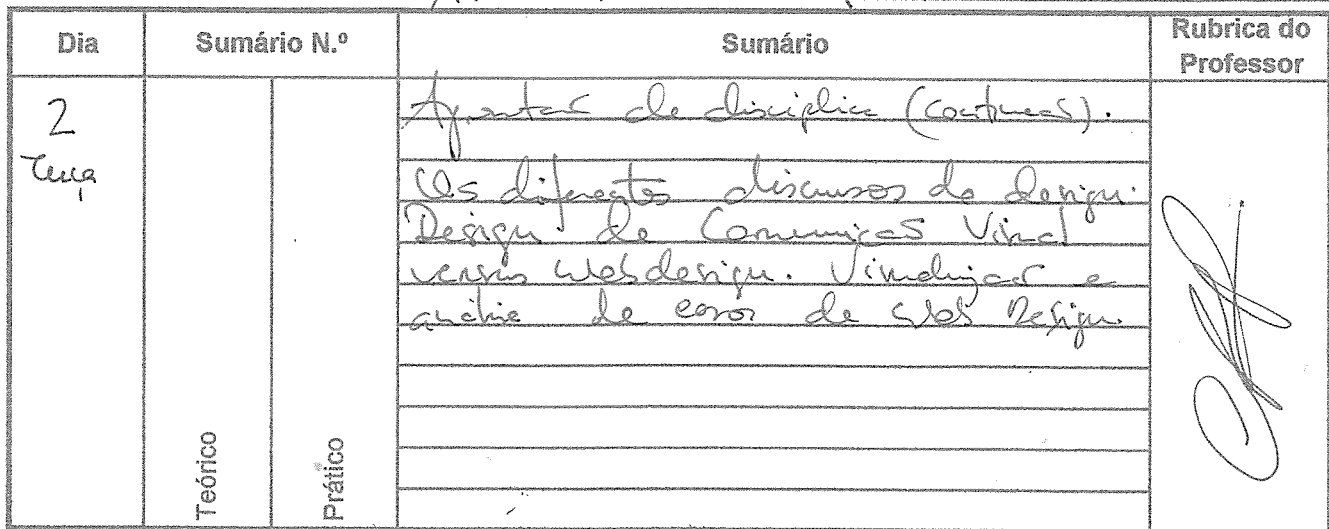 Dia Sumário N.º Sumário Rubrica do Professor
2
Terça
Teórico
Prático
Apresentação da disciplina (continuação).
Os diferentes discursos do design.
Design de Comunicação Visual
versus Webdesign. Visualização e
análise de casos de Web Design.